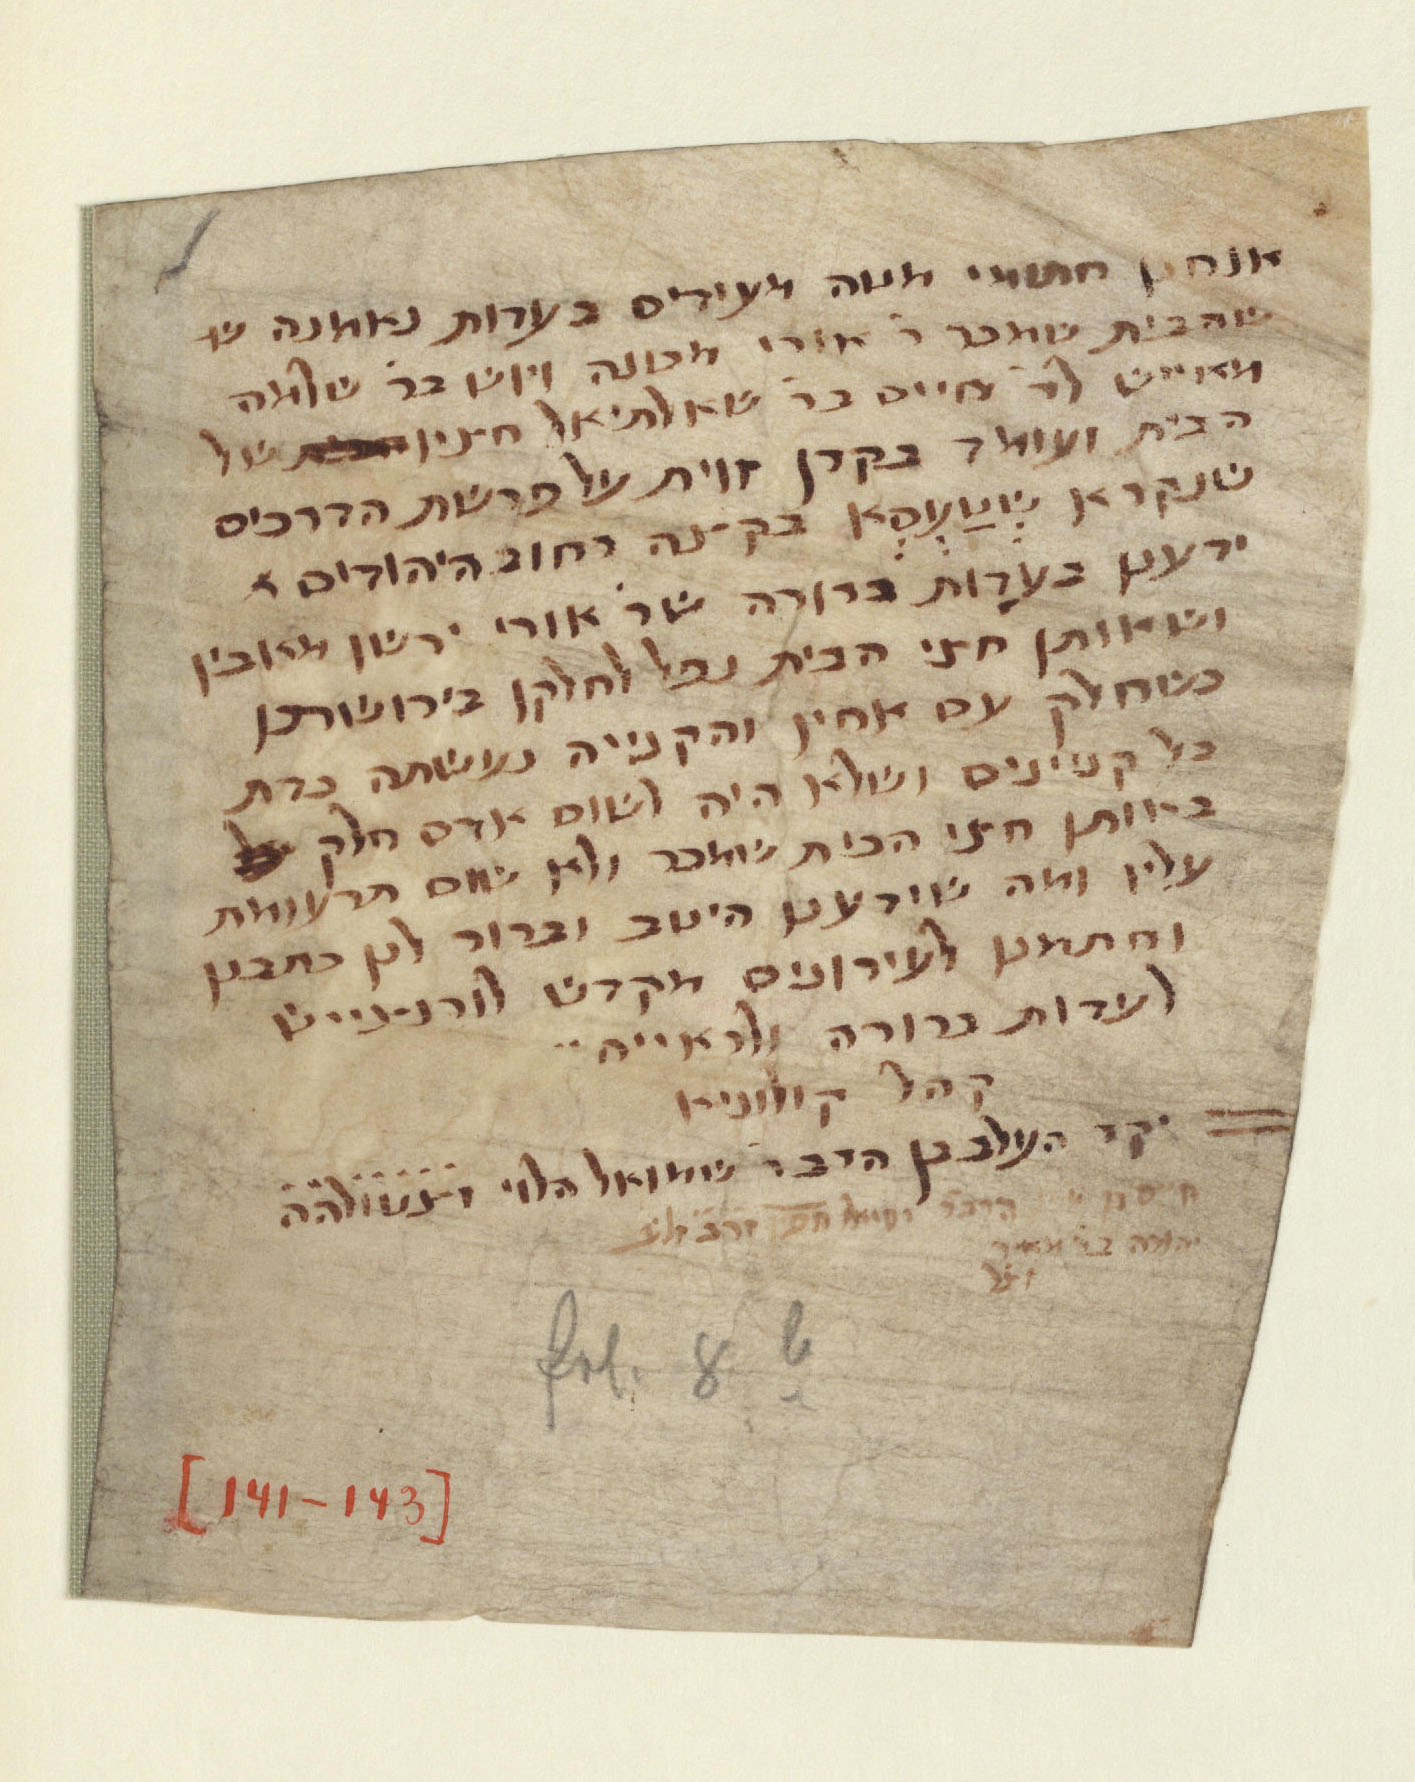 אנחנו חתומי מטה מעידים בעדות נאמנה ש
שהבית שמכר ר' אורי מבונה ויוט בר' שלמה
מאייש לר' חיים בר' שאלתיאל חציו של
הבית ועומד בקרן זוית על פרשת הדרכים
שנקרא שטעסא בקצה רחוב היהודים
ידענו בעדות ברורה שר' אורי ירשו מאביו
ושאותו חצי הבית נפל לחלקו בירושתו
כשחלק עם אחיו והקנייה נעשתה כדת
כל קניינים ושלא היה לשום אדם חלק
באותו חצי הבית שמכר ולא שום תרעומת
עליו ומה שידענו היטב וברור לנו כתבנו
וחתמנו לעירונים מקדש לורנצייש
לעדות ברורה ולראייה
קהל קולוניא
יקר העלוב בן הרב ר' שמואל הלוי
יהודה בר' מאיר
זצל
fol. 8 b
[141-143]